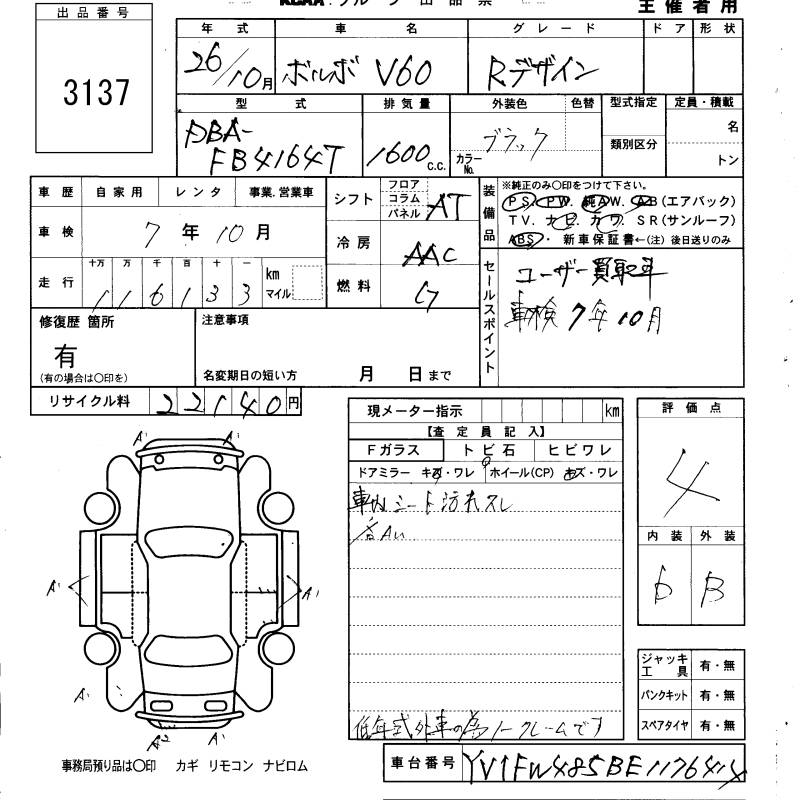 出品番号
3137
主催者用
年式 車名 グレード ドア 形状
26/10月 ボルボ V60 Rデザイン
型式 排気量 外装色 色替 型式指定 定員・積載
DBA-
FB4164T 1600 c.c. ブラック カラーNo. 類別区分 名
トン
車歴 自家用 レンタ 事業.営業車
車検 7年10月
走行 十万 万 千 百 十 一
116133 km マイル
シフト フロア コラム パネル AT
冷房 AAC
燃料 G
装備品 ※純正のみ○印をつけて下さい。
PS. PW. 純AW. AB(エアバック)
TV. ナビ. カワ. SR(サンルーフ)
ABS. 新車保証書←(注) 後日送りのみ
セールスポイント
ユーザー買取車
車検 7年10月
修復歴 箇所
有
(有の場合は○印を)
注意事項
名変期日の短い方 月 日まで
リサイクル料 22140円
現メーター指示 km
【査定員記入】
Fガラス トビ石 ヒビワレ
ドアミラー キズ・ワレ ホイール(CP) キズ・ワレ
車内シート汚れスレ
各A'
低年式外車の為ノークレームです
評価点
4
内装 外装
D B
ジャッキ 工具 有・無
パンクキット 有・無
スペアタイヤ 有・無
A' A'
A' A'
A'
A2 A'
事務局預り品は○印 カギ リモコン ナビロム
車台番号 YV1FW485BE1176414